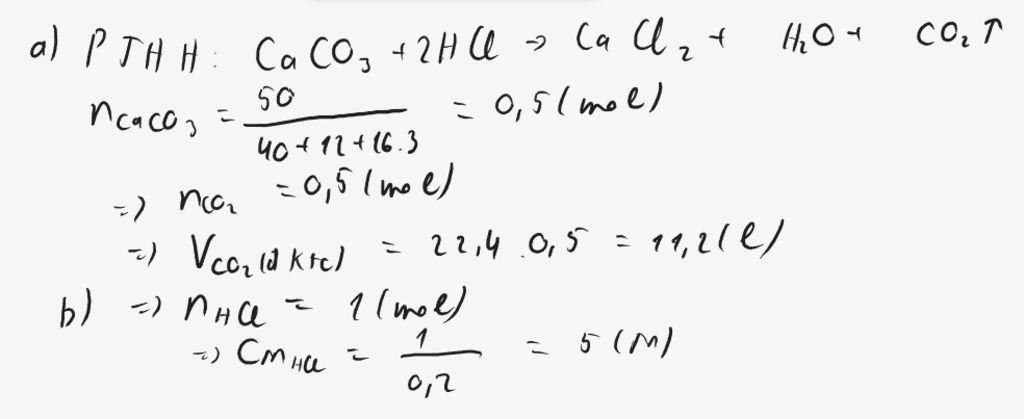 a) PTHH: CaCO₃ + 2HCl → CaCl₂ + H₂O + CO₂↑
nCaCO₃ = 50 / (40 + 12 + 16.3) = 0,5 (mol)
=) nCO₂ = 0,5 (mol)
=) VCO₂ (đktc) = 22,4 . 0,5 = 11,2 (l)
b) =) nHCl = 1 (mol)
=) CMHCl = 1 / 0,2 = 5 (M)